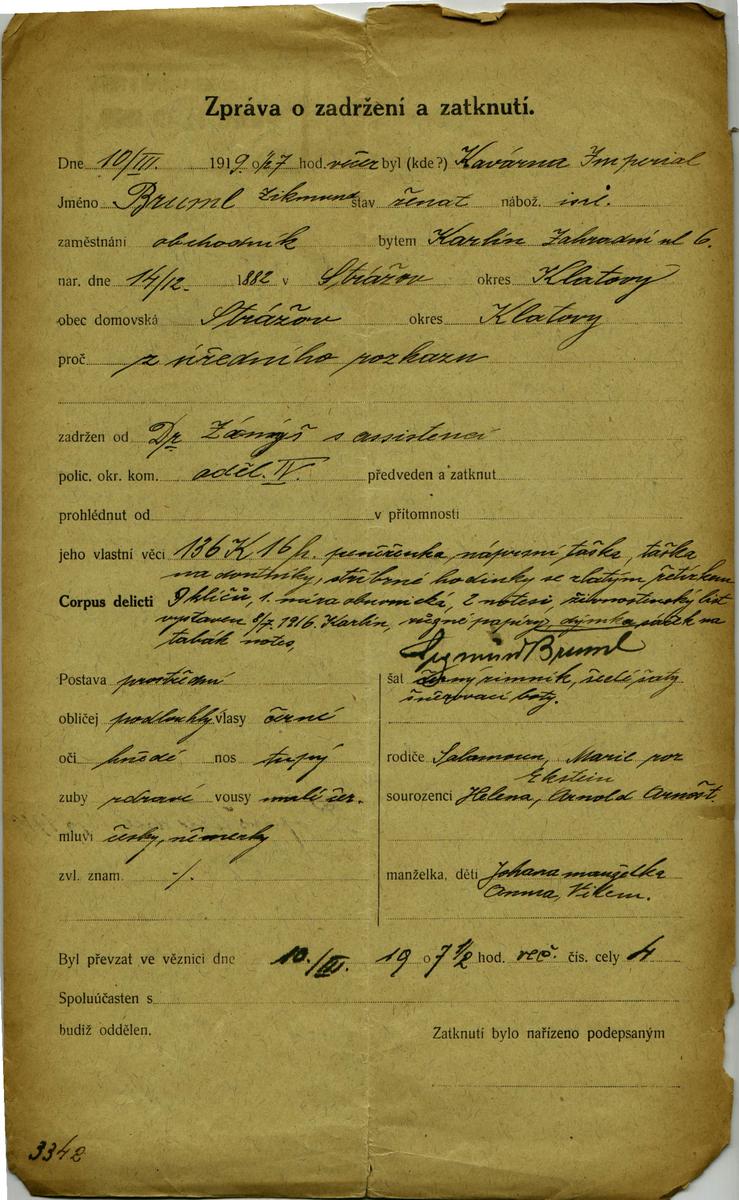 Zpráva o zadržení a zatknutí.
Dne 10/III. 1919 o 1/27 hod. večer byl (kde?) Kavárna Imperial
Jméno Bruml Zikmund stav ženat nábož. isr.
zaměstnání obchodník bytem Karlín Zahradní ul 6.
nar. dne 14/12. 1882 v Strážov okres Klatovy
obec domovská Strážov okres Klatovy
proč z úředního rozkazu
zadržen od Dr s assistencí
polic. okr. kom. odděl. IV. předveden a zatknut
prohlédnut od v přítomnosti
jeho vlastní věci 136 K 16 h. peněženka, náprsní taška, taška
na doutníky, stříbrné hodinky se zlatým řetízkem
Corpus delicti 9 klíčů, 1. míra obuvnická, 2 notesi, živnostenský list
vystaven 8/7. 1916. Karlín, různé papíry, dýmka, sáček na
tabák notes,
Sigmund Bruml
Postava prostřední šat černý zimník, šedé šaty
šněrovací boty.
obličej podlouhlý vlasy černé
oči hnědé nos tupý rodiče Salamoun, Marie roz
Ekstein
zuby zdravé vousy malé čer. sourozenci Helena, Arnold Arnošt.
mluví česky, německy
zvl. znam. -/. manželka, děti Johana manželka
Anna, Vilém.
Byl převzat ve věznici dne 10./III. 19 o 7 1/2 hod. več. čís. cely 4
Spoluúčasten s
budiž oddělen. Zatknutí bylo nařízeno podepsaným
3342